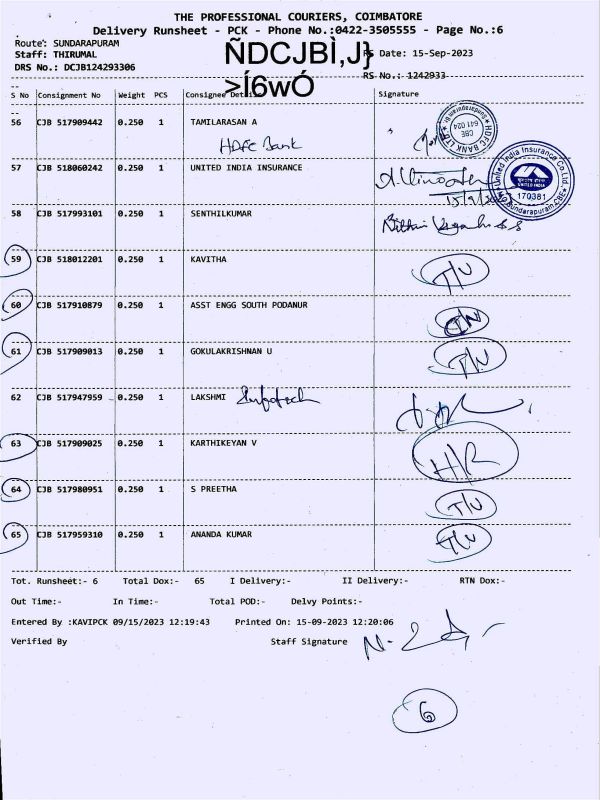 THE PROFESSIONAL COURIERS, COIMBATORE
Delivery Runsheet - PCK - Phone No.:0422-3505555 - Page No.:6
Route: SUNDARAPURAM
Staff: THIRUMAL
DRS No.: DCJB124293306
ÑDCJBÌ,J}
>Í6wÓ
RS Date: 15-Sep-2023
RS No.: 1242933
S No Consignment No Weight PCS Consignee Details Signature
56 CJB 517909442 0.250 1 TAMILARASAN A
HDFC Bank
HDFC BANK LTD
Sundarapuram
CBE
641 024
57 CJB 518060242 0.250 1 UNITED INDIA INSURANCE
United India Insurance Co.Ltd.
UNITED INDIA
170381
Sundarapuram, CBE
58 CJB 517993101 0.250 1 SENTHILKUMAR
59 CJB 518012201 0.250 1 KAVITHA
60 CJB 517910879 0.250 1 ASST ENGG SOUTH PODANUR
61 CJB 517909013 0.250 1 GOKULAKRISHNAN U
62 CJB 517947959 0.250 1 LAKSHMI Infotech
63 CJB 517909025 0.250 1 KARTHIKEYAN V H/R
64 CJB 517980951 0.250 1 S PREETHA
65 CJB 517959310 0.250 1 ANANDA KUMAR
Tot. Runsheet:- 6 Total Dox:- 65 I Delivery:- II Delivery:- RTN Dox:-
Out Time:- In Time:- Total POD:- Delvy Points:-
Entered By :KAVIPCK 09/15/2023 12:19:43 Printed On: 15-09-2023 12:20:06
Verified By Staff Signature
6